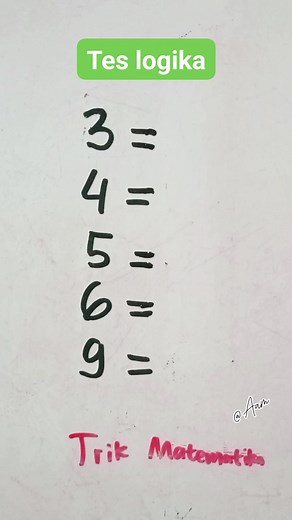 Tes logika
3 =
4 =
5 =
6 =
9 =
@Aam
Trik Matematika